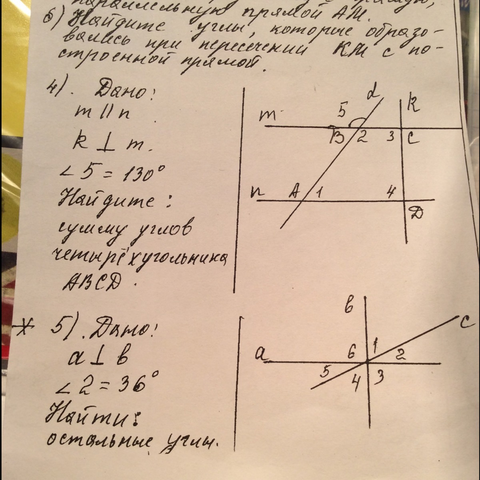 параллельную прямой АМ.
б) Найдите углы, которые образо-
вались при пересечении КМ с по-
строенной прямой.
4). Дано:
m || n
k ⊥ m.
∠5 = 130°
Найдите:
сумму углов
четырёхугольника
ABCD.
m
5
d
k
B
2
3
C
n
A
1
4
D
* 5). Дано:
a ⊥ b
∠2 = 36°
Найти:
остальные углы.
в
c
a
6
1
2
5
4
3